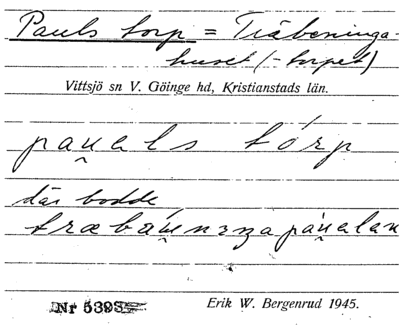 Pauls torp = Träbeninga-
huset (-torpet)
Vittsjö sn V. Göinge hd, Kristianstads län.
pau̯els tórp
där bodde
Nr 5393
Erik W. Bergenrud 1945.